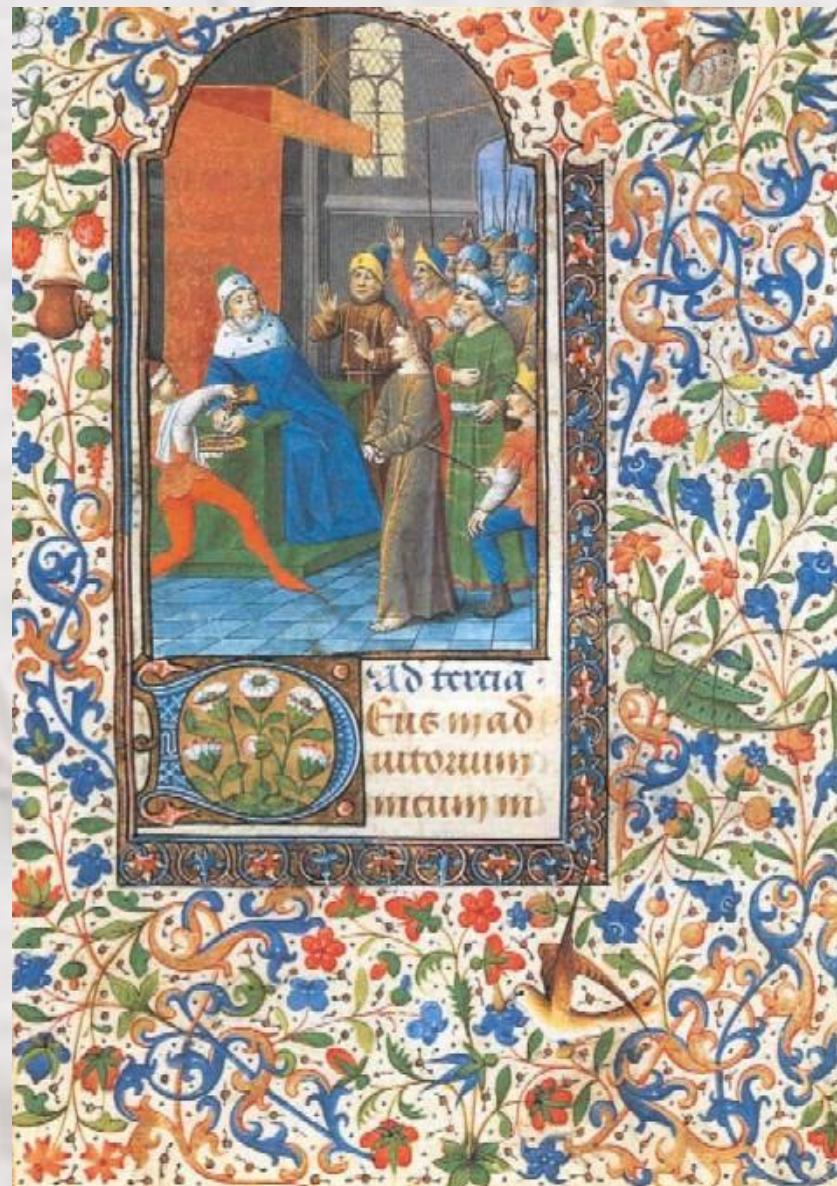 Ad tercia̅.
Deus in ad
iutorium
meum in